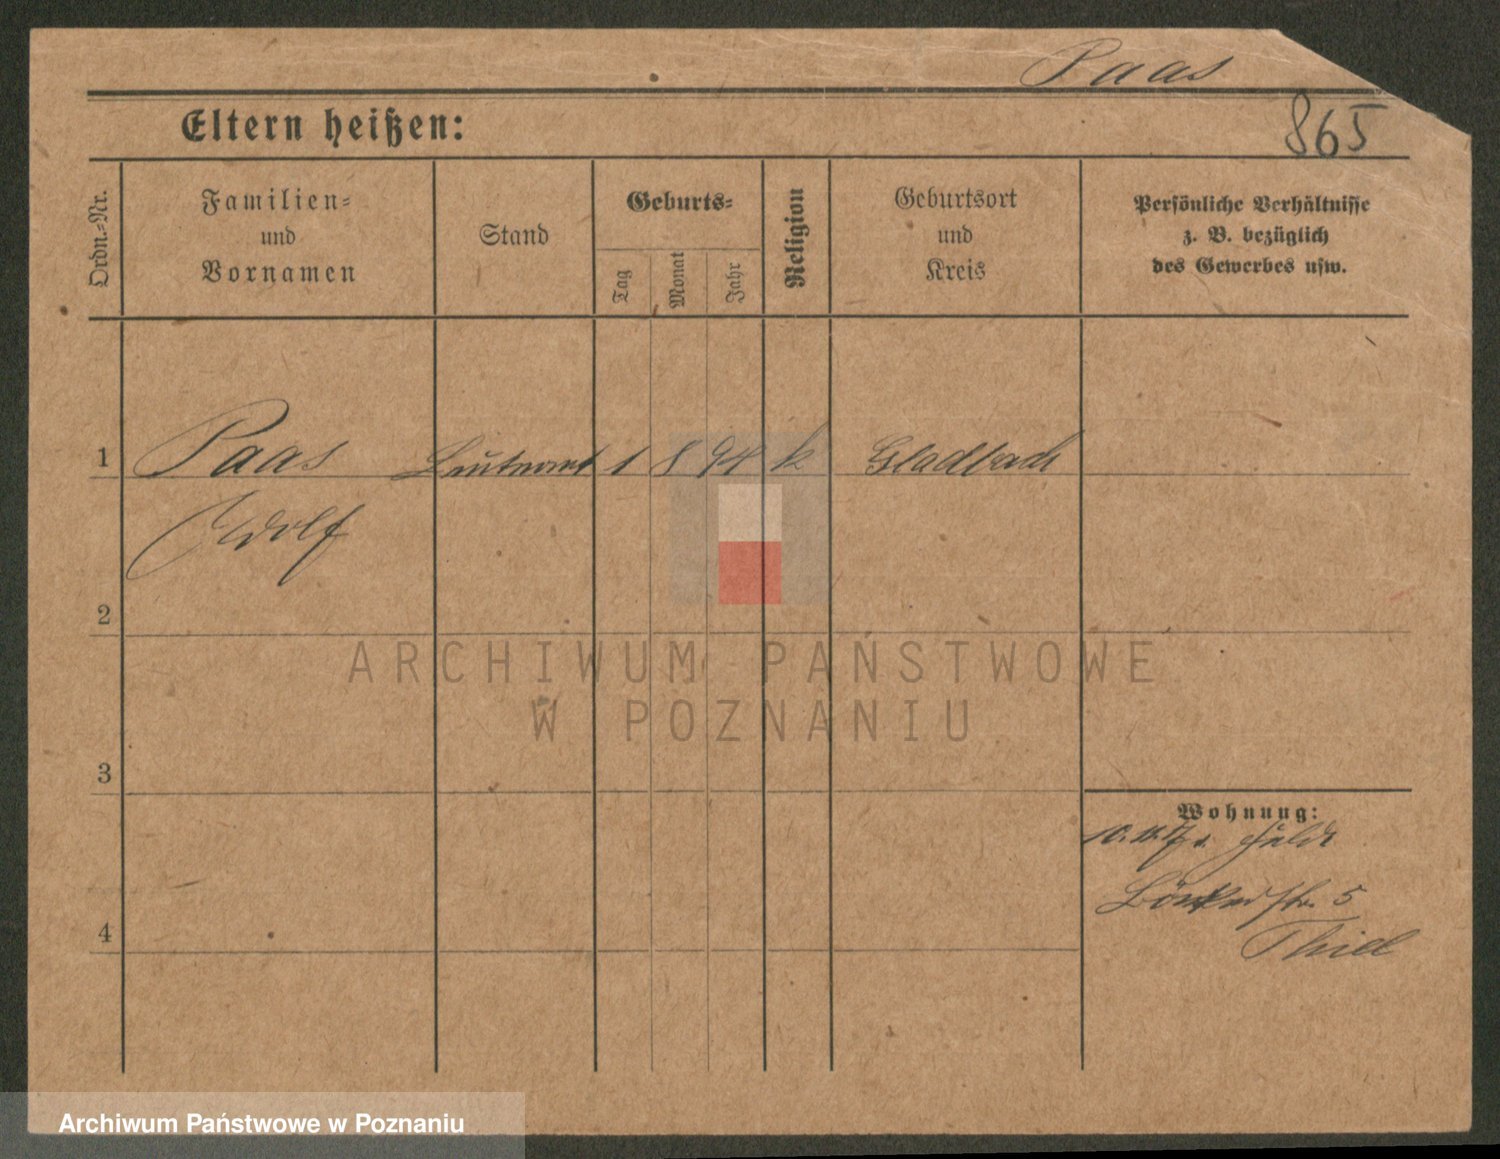 Paas
865
Eltern heißen:
Ordn.-Nr.
Familien-
und
Vornamen
Stand
Geburts-
Tag
Monat
Jahr
Religion
Geburtsort
und
Kreis
Persönliche Verhältnisse
z. B. bezüglich
des Gewerbes usw.
1 Paas Leutnant 1 8 94 k Gladbach
Adolf
2
3
4
ARCHIWUM PAŃSTWOWE
W POZNANIU
Wohnung:
10.
str. 5
Thiel
Archiwum Państwowe w Poznaniu